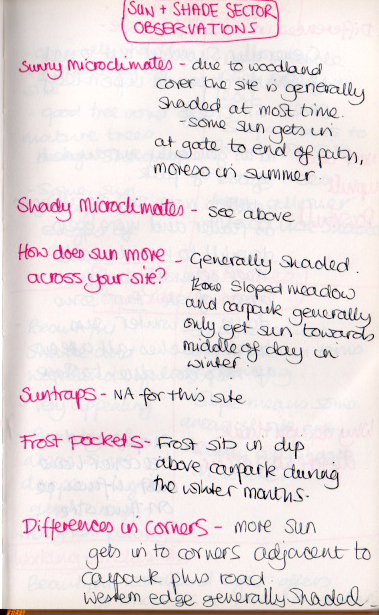 SUN + SHADE SECTOR
OBSERVATIONS
Sunny Microclimates - due to woodland
cover the site is generally
shaded at most time.
- some sun gets in
at gate to end of path,
moreso in summer.
Shady Microclimates - see above
How does sun move - Generally shaded.
across your site? Low sloped meadow
and carpark generally
only get sun towards
middle of day in
winter.
Suntraps - NA for this site
Frost pockets - Frost sits in dip
above carpark during
the winter months.
Differences in corners - more sun
gets in to corners adjacent to
carpark plus road.
western edge generally shaded